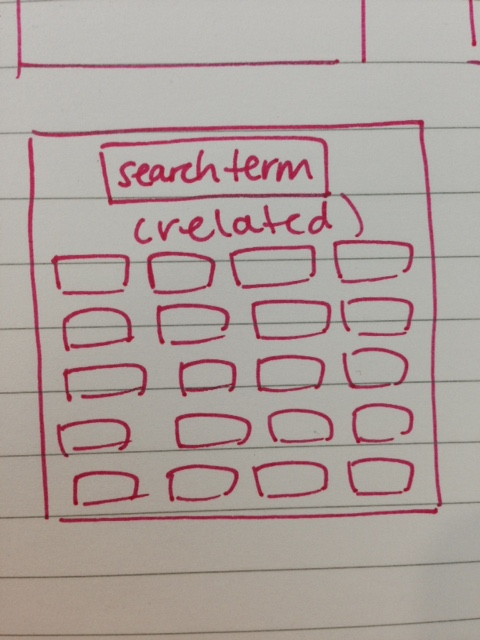 search term
(related)